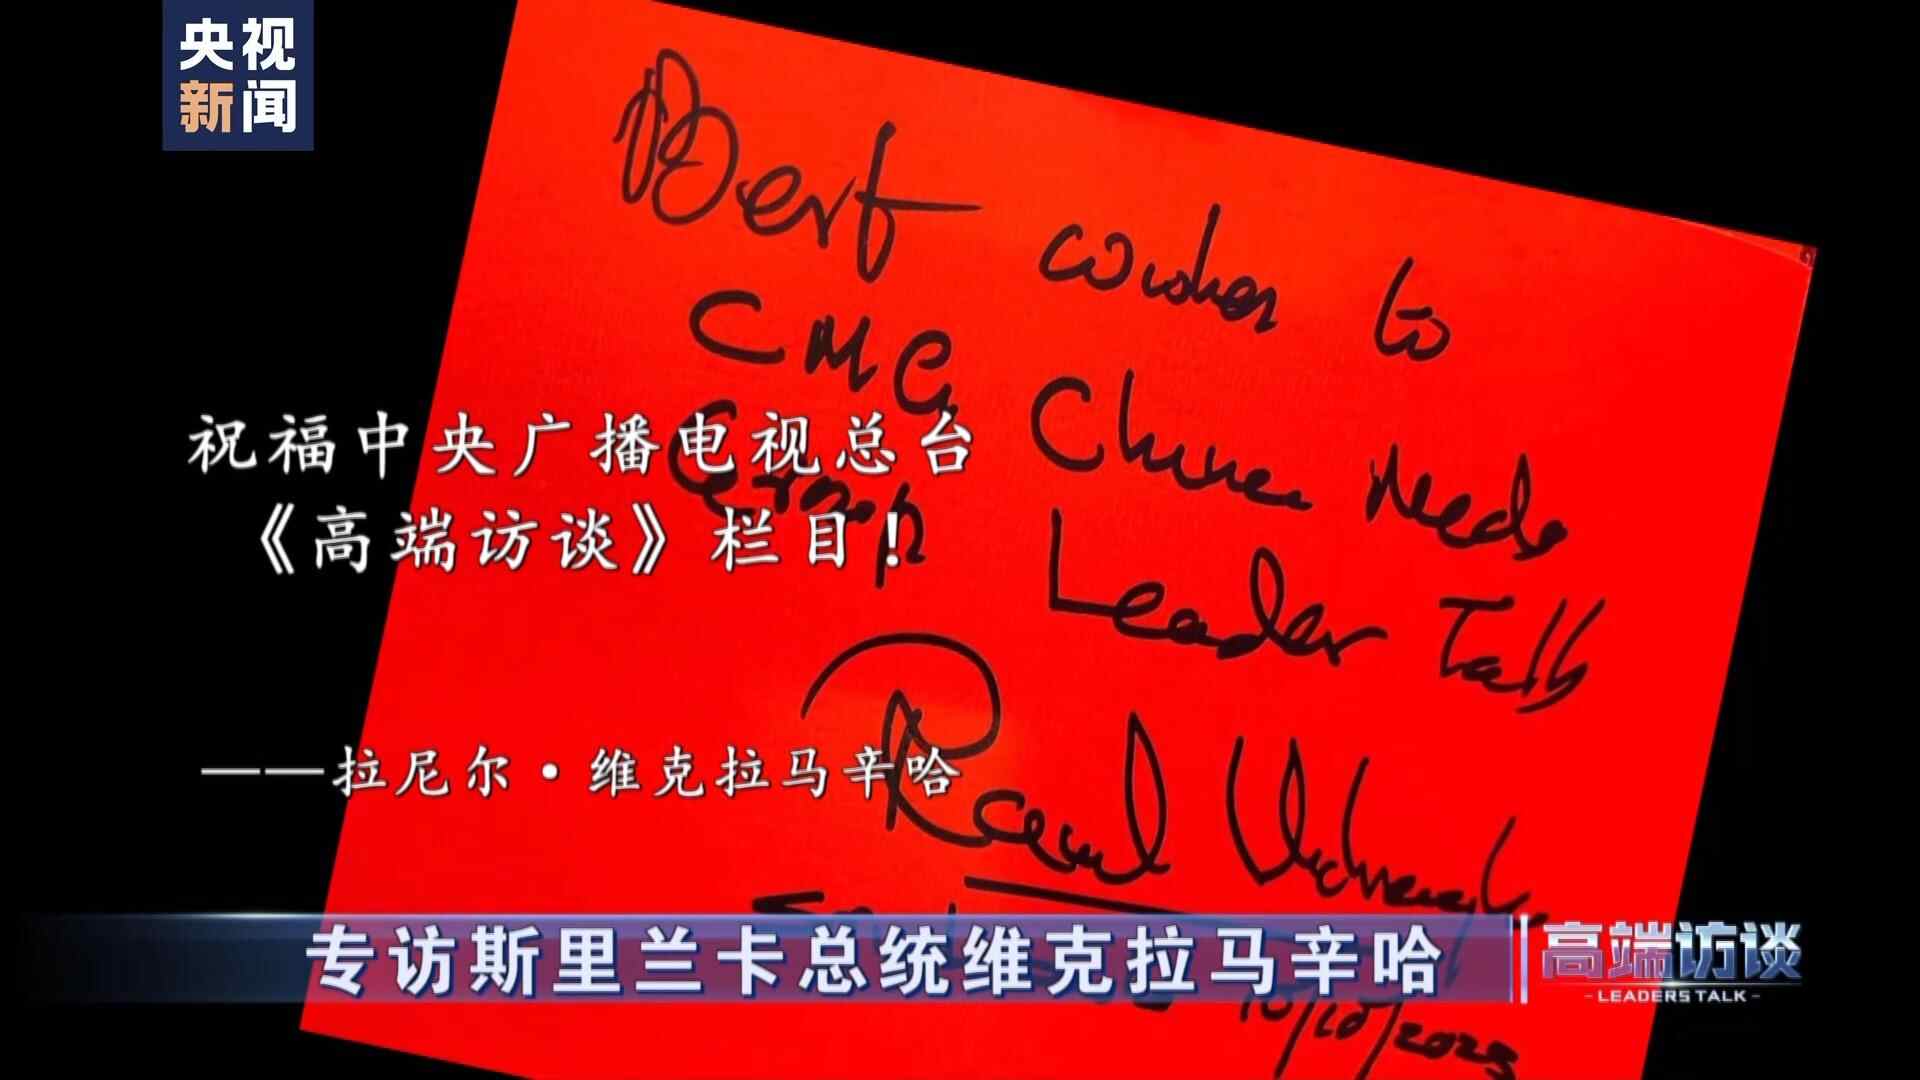 央视
新闻
Best wishes to
CMG China Media
Group Leader Talk
祝福中央广播电视总台
《高端访谈》栏目！
——拉尼尔·维克拉马辛哈
专访斯里兰卡总统维克拉马辛哈
高端访谈
-LEADERS TALK-
10/10/2023